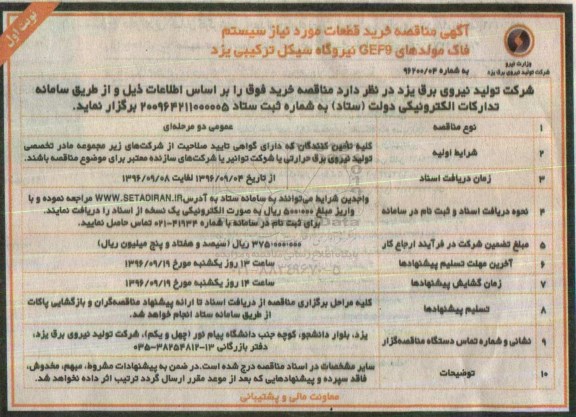 نوبت اول
آگهی مناقصه خرید قطعات مورد نیاز سیستم
فاک مولدهای GEF9 نیروگاه سیکل ترکیبی یزد
به شماره ۹۶۲۰۰/۰۴
وزارت نیرو
شرکت تولید نیروی برق یزد
شرکت تولید نیروی برق یزد در نظر دارد مناقصه خرید فوق را بر اساس اطلاعات ذیل و از طریق سامانه
تدارکات الکترونیکی دولت (ستاد) به شماره ثبت ستاد ۲۰۰۹۶۴۲۱۱۰۰۰۰۰۵ برگزار نماید.
۱ نوع مناقصه عمومی دو مرحله‌ای
۲ شرایط اولیه کلیه تأمین کنندگان که دارای گواهی تایید صلاحیت از شرکت‌های زیر مجموعه مادر تخصصی
تولید نیروی برق حرارتی یا شرکت توانیر یا شرکت‌های سازنده معتبر برای موضوع مناقصه باشند.
۳ زمان دریافت اسناد از تاریخ ۱۳۹۶/۰۹/۰۴ لغایت ۱۳۹۶/۰۹/۰۸
۴ نحوه دریافت اسناد و ثبت نام در سامانه واجدین شرایط می‌توانند به سامانه ستاد به آدرس WWW.SETADIRAN.IR مراجعه نموده و با
واریز مبلغ ۵۰۰/۰۰۰ ریال به صورت الکترونیکی یک نسخه از اسناد را دریافت نمایند.
برای ثبت نام در سامانه با شماره ۴۱۹۳۴-۰۲۱ تماس حاصل نمایید.
۵ مبلغ تضمین شرکت در فرآیند ارجاع کار ۳۷۵/۰۰۰/۰۰۰ ریال (سیصد و هفتاد و پنج میلیون ریال)
۶ آخرین مهلت تسلیم پیشنهادها ساعت ۱۳ روز یکشنبه مورخ ۱۳۹۶/۰۹/۱۹
۷ زمان گشایش پیشنهادها ساعت ۱۴ روز یکشنبه مورخ ۱۳۹۶/۰۹/۱۹
۸ تسلیم پیشنهادها کلیه مراحل برگزاری مناقصه از دریافت اسناد تا ارائه پیشنهاد مناقصه‌گران و بازگشایی پاکات
از طریق سامانه ستاد انجام خواهد شد.
۹ نشانی و شماره تماس دستگاه مناقصه‌گزار یزد، بلوار دانشجو، کوچه جنب دانشگاه پیام نور (چهل و یکم)، شرکت تولید نیروی برق یزد،
دفتر بازرگانی ۱۳-۳۸۲۵۴۸۱۲-۰۳۵
۱۰ توضیحات سایر مشخصات در اسناد مناقصه درج شده است. در ضمن به پیشنهادات مشروط، مبهم، مخدوش،
فاقد سپرده و پیشنهادهایی که بعد از موعد مقرر ارسال گردد ترتیب اثر داده نخواهد شد.
معاونت مالی و پشتیبانی